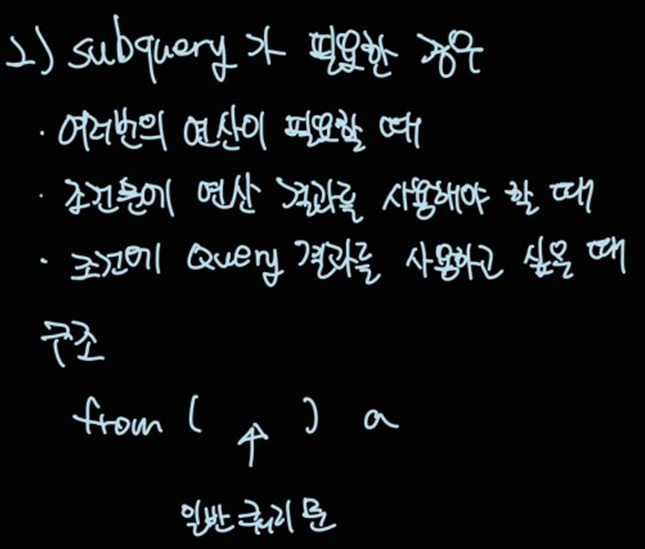 2) subquery가 필요한 경우
· 여러번의 연산이 필요할 때
· 조건문에 연산 결과를 사용해야 할 때
· 조건에 Query 결과를 사용하고 싶을 때
구조
from ( ↑ ) a
일반쿼리문